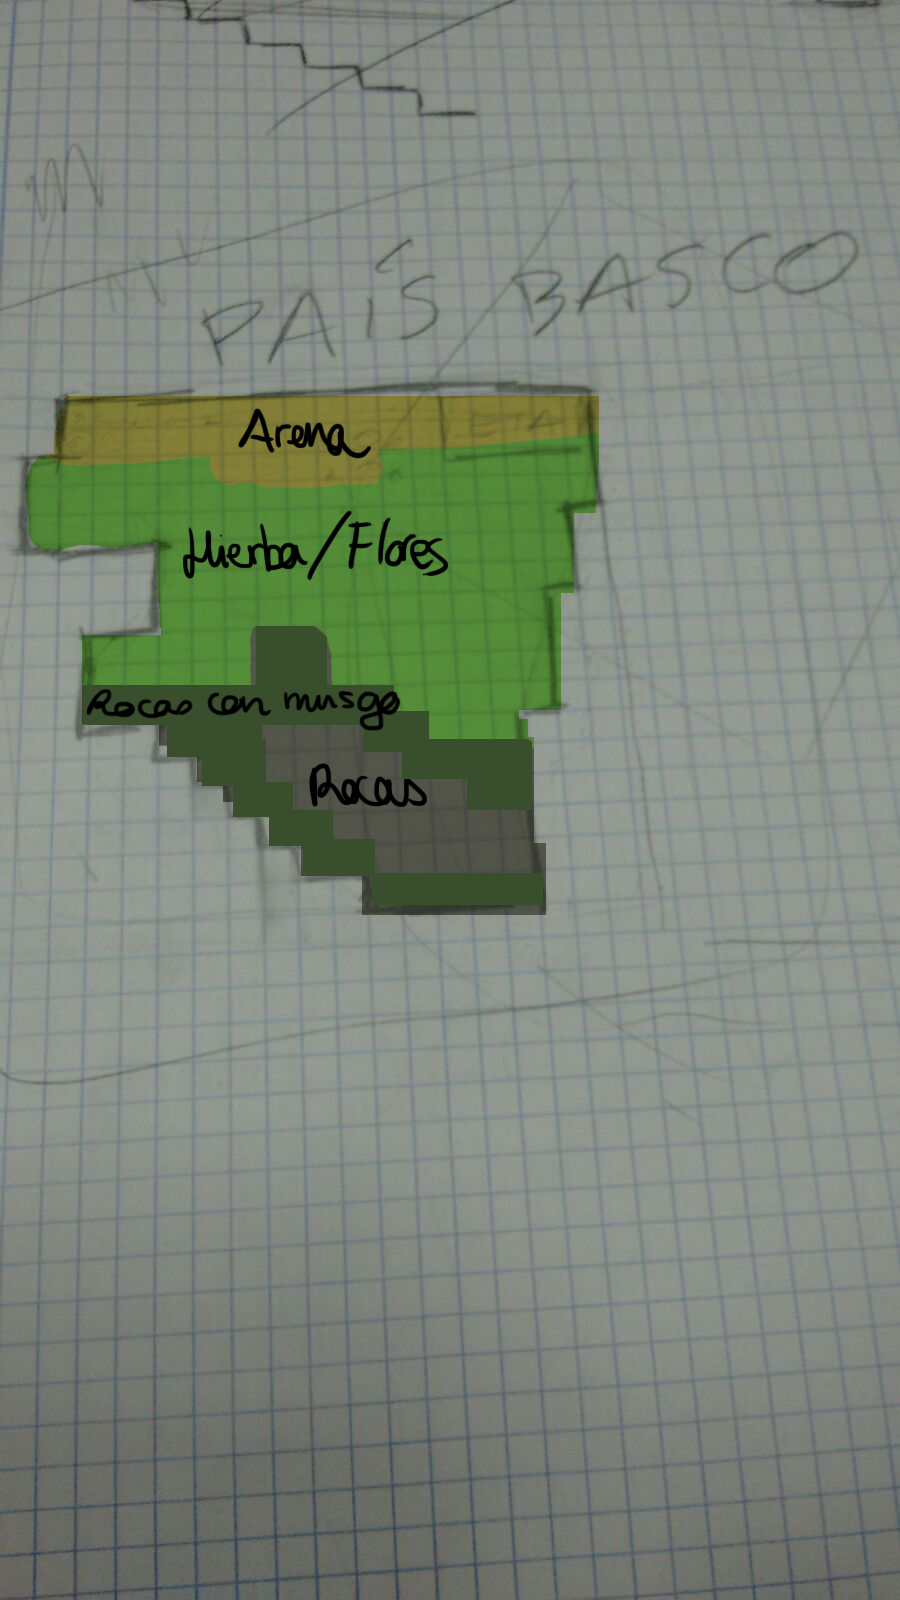 PAÍS BASCO
Arena
ETA
Hierba/Flores
Rocas con musgo
Rocas